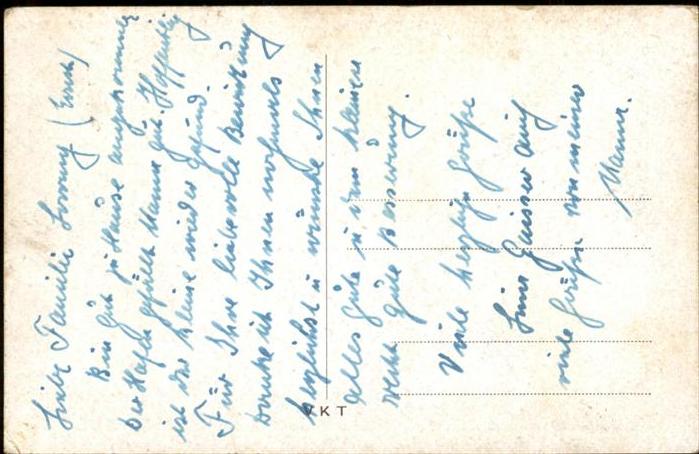 Liebe Familie (Ernst)
Bin gut zu Hause angekommen
Der Hafen gefällt Mama gut. Hoffentlich
ist der kleine wieder gesund.
Für Ihre liebevolle Bewirtung
danke ich Ihnen nochmals
herzlichst u. wünsche Ihnen
alles Gute u. dem kleinen
recht gute Besserung.
Viele herzliche Grüße
Ihre
viele Grüße von meiner
Mama.
VKT